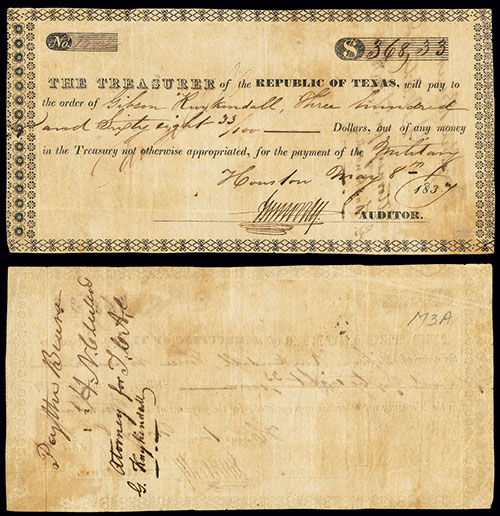 No.
$ 368,33
THE TREASURER of the REPUBLIC OF TEXAS, will pay to
the order of Gibson Kuykendall, Three hundred
and Sixty eight 33/100 Dollars, out of any money
in the Treasury not otherwise appropriated, for the payment of the Military
Houston May 8th
1837
AUDITOR.
Pay the Bearer
Attorney for
G. Kuykendall
M3A